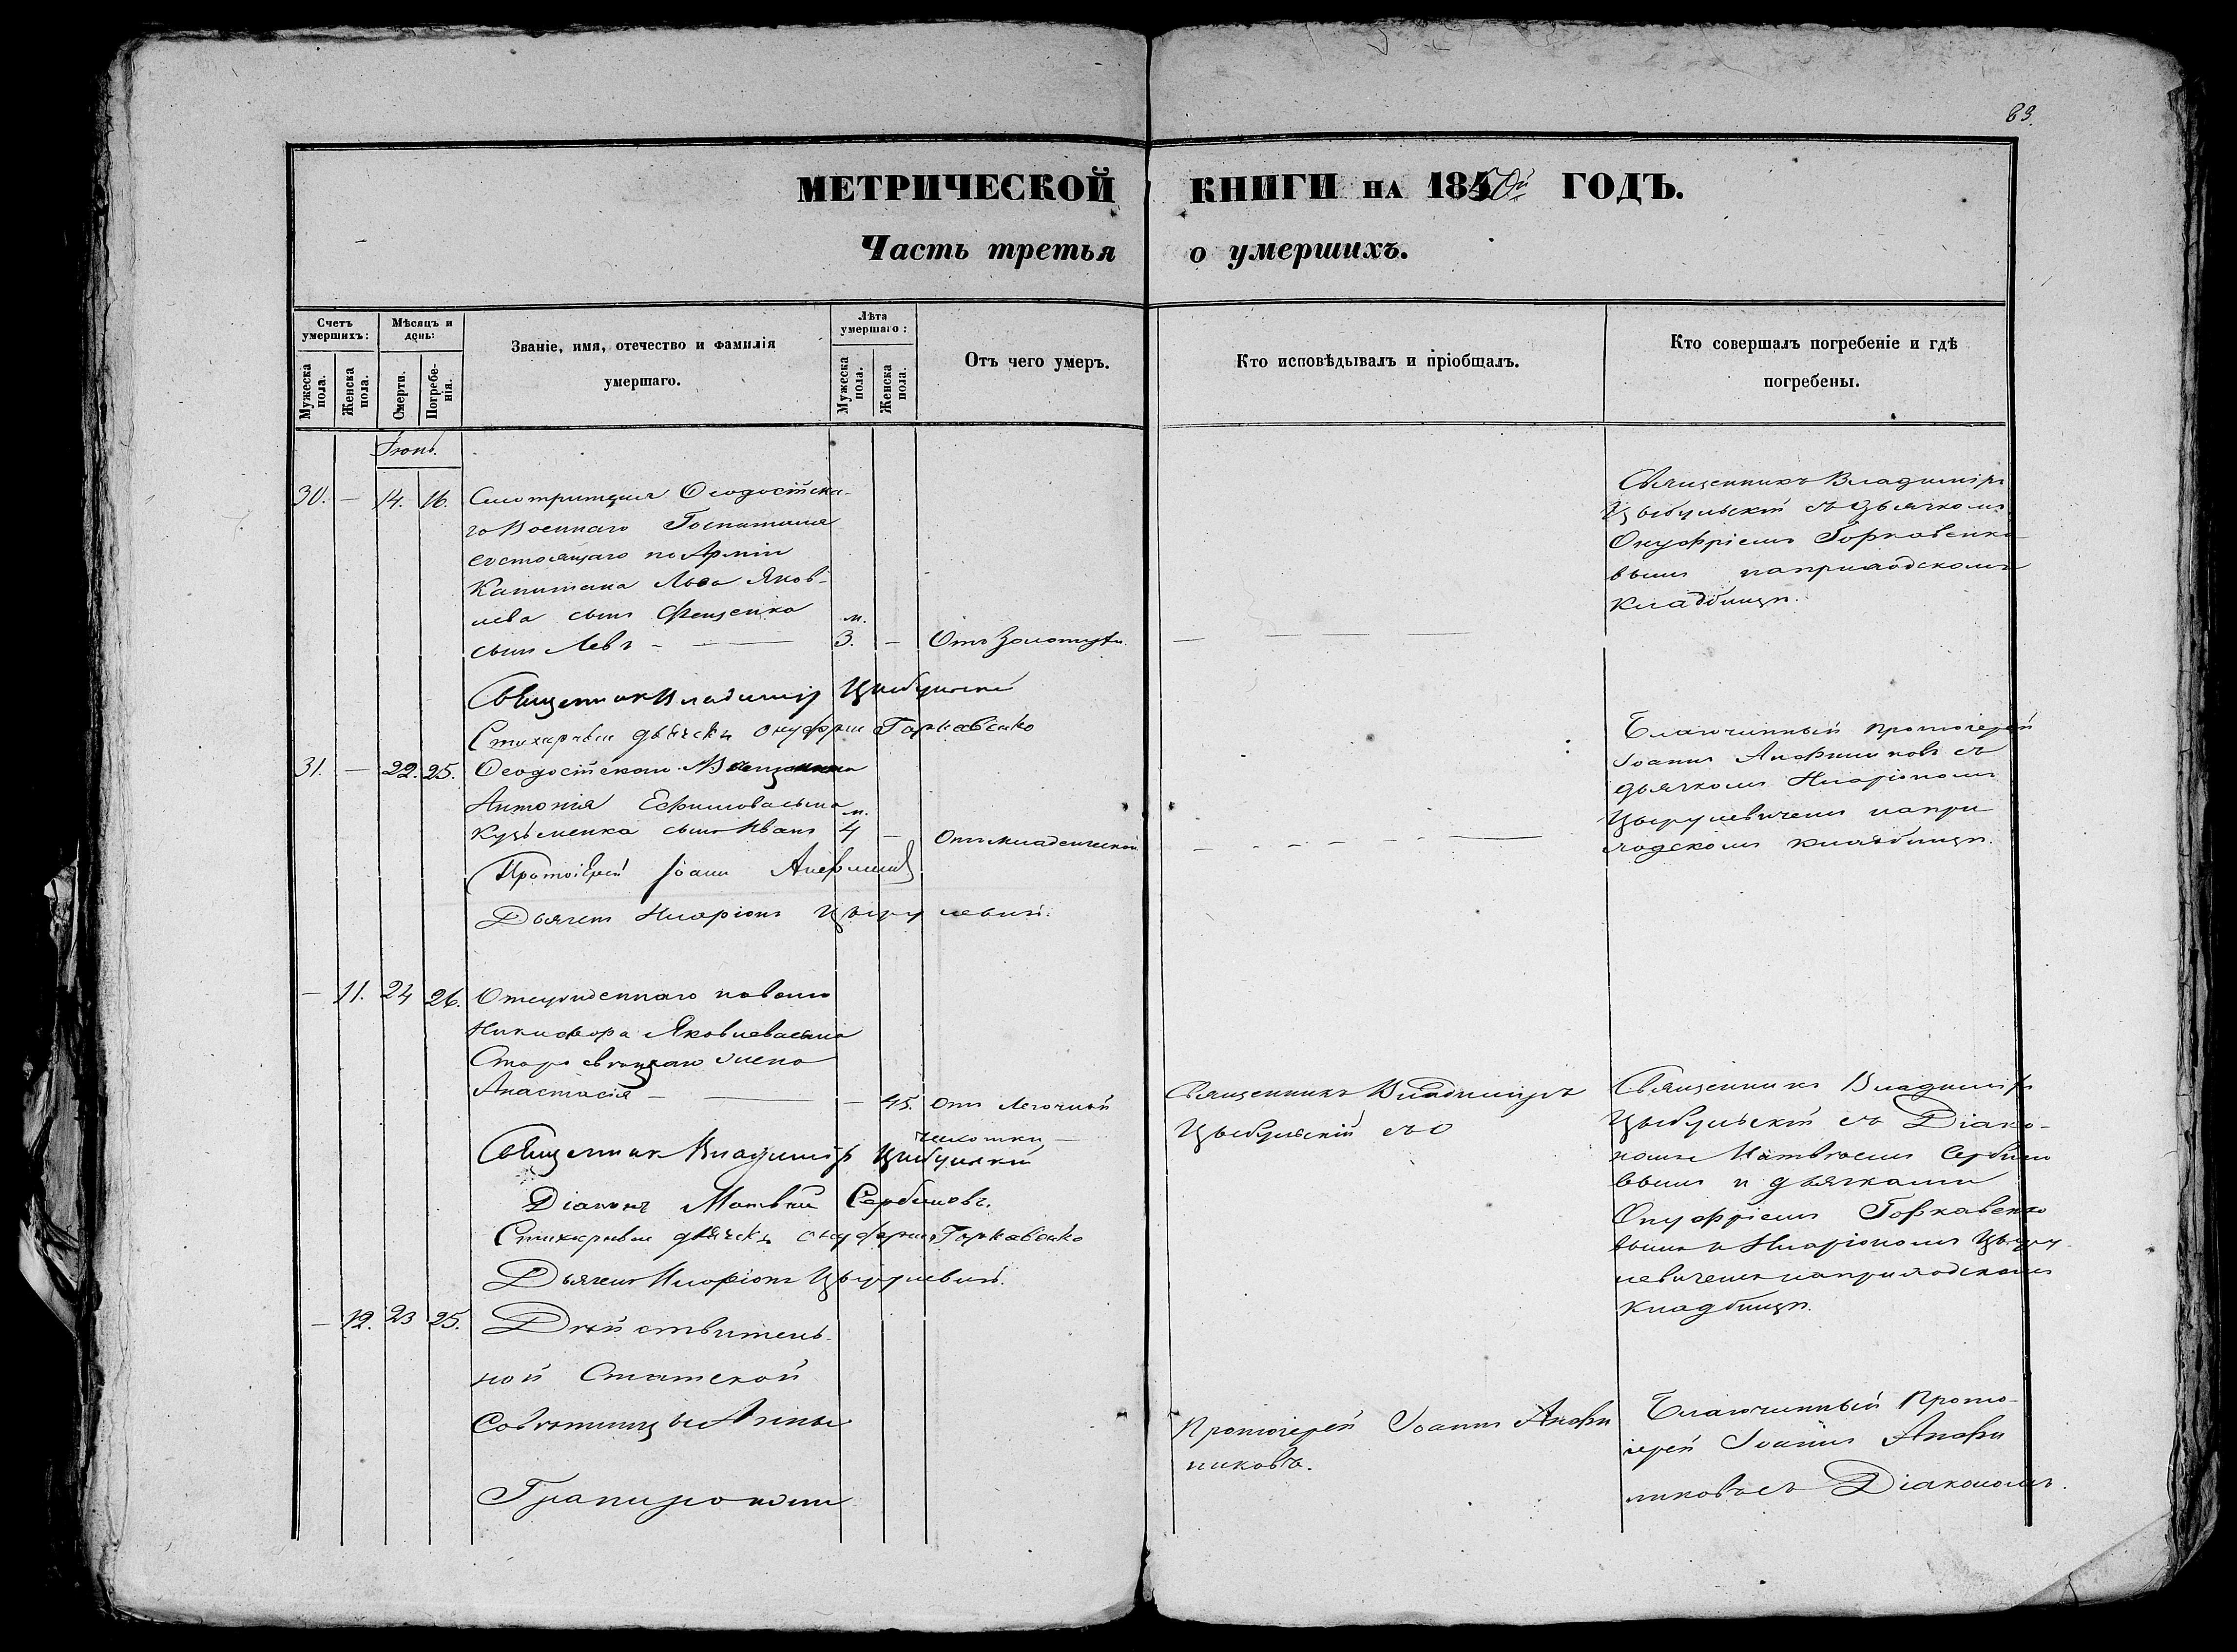 83.
МЕТРИЧЕСКОЙ КНИГИ НА 1850й ГОДЪ.
Часть третья о умершихъ.
Счетъ умершихъ:
Мужеска пола.
Женска пола.
Мѣсяцъ и день:
Смерти.
Погребенія.
Званіе, имя, отечество и фамилія
умершаго.
Лѣта умершаго:
Мужеска пола.
Женска пола.
Отъ чего умеръ.
Кто исповѣдывалъ и пріобщалъ.
Кто совершалъ погребеніе и гдѣ
погребены.
Іюнь.
30. — 14. 16. Смотрителя Ѳеодосійска-
го Военнаго Госпиталя
состоящаго по Арміи
Капитана Льва Яков-
лева сына Фещенка
сынъ Левъ — м. 3. — Отъ Золотухи.
Священникъ Владиміръ
Цыбульскій съ дьячкомъ
Онуфріемъ Горковенко-
вымъ на приходскомъ
кладбищѣ.
Священникъ Владиміръ Цыбульскій
Стихарный дьячекъ Онуфрій Горкавенко
31. — 22. 25. Ѳеодосійскаго
Антонія Ефимова сына
Кузьменка сынъ Иванъ м. 4 — Отъ младенческой
Благочинный Протоіерей
Іоаннъ Анфиниковъ съ
дьячкомъ Иларіономъ
Цырулевичемъ на при-
ходскомъ кладбищѣ.
Протоіерей Іоаннъ
Дьячекъ Иларіонъ Цырулевичъ.
— 11. 24 26. Отсужденнаго
Никифора Яковлева сына
жена
Анастасія — — 45. Отъ Легочной
чахотки —
Священникъ Владиміръ
Цыбульскій съ
Священникъ Владиміръ
Цыбульскій съ Діако-
номъ Матвѣемъ Сербино-
вымъ и дьячками
Онуфріемъ Горкавенко-
вымъ и Иларіономъ Цыру-
левичемъ на приходскомъ
кладбищѣ.
Священникъ Владиміръ Цыбульскій
Діаконъ Матвѣй Сербиновъ.
Стихарный дьячекъ Онуфрій Горкавенко
Дьячекъ Иларіонъ Цырулевичъ.
— 12. 23 25. Дѣйствитель-
ной Статской
Совѣтницы Анны
Протоіерей Іоаннъ Анфи-
никовъ.
Благочинный Прото-
іерей Іоаннъ Анфи-
никовъ съ Діакономъ.